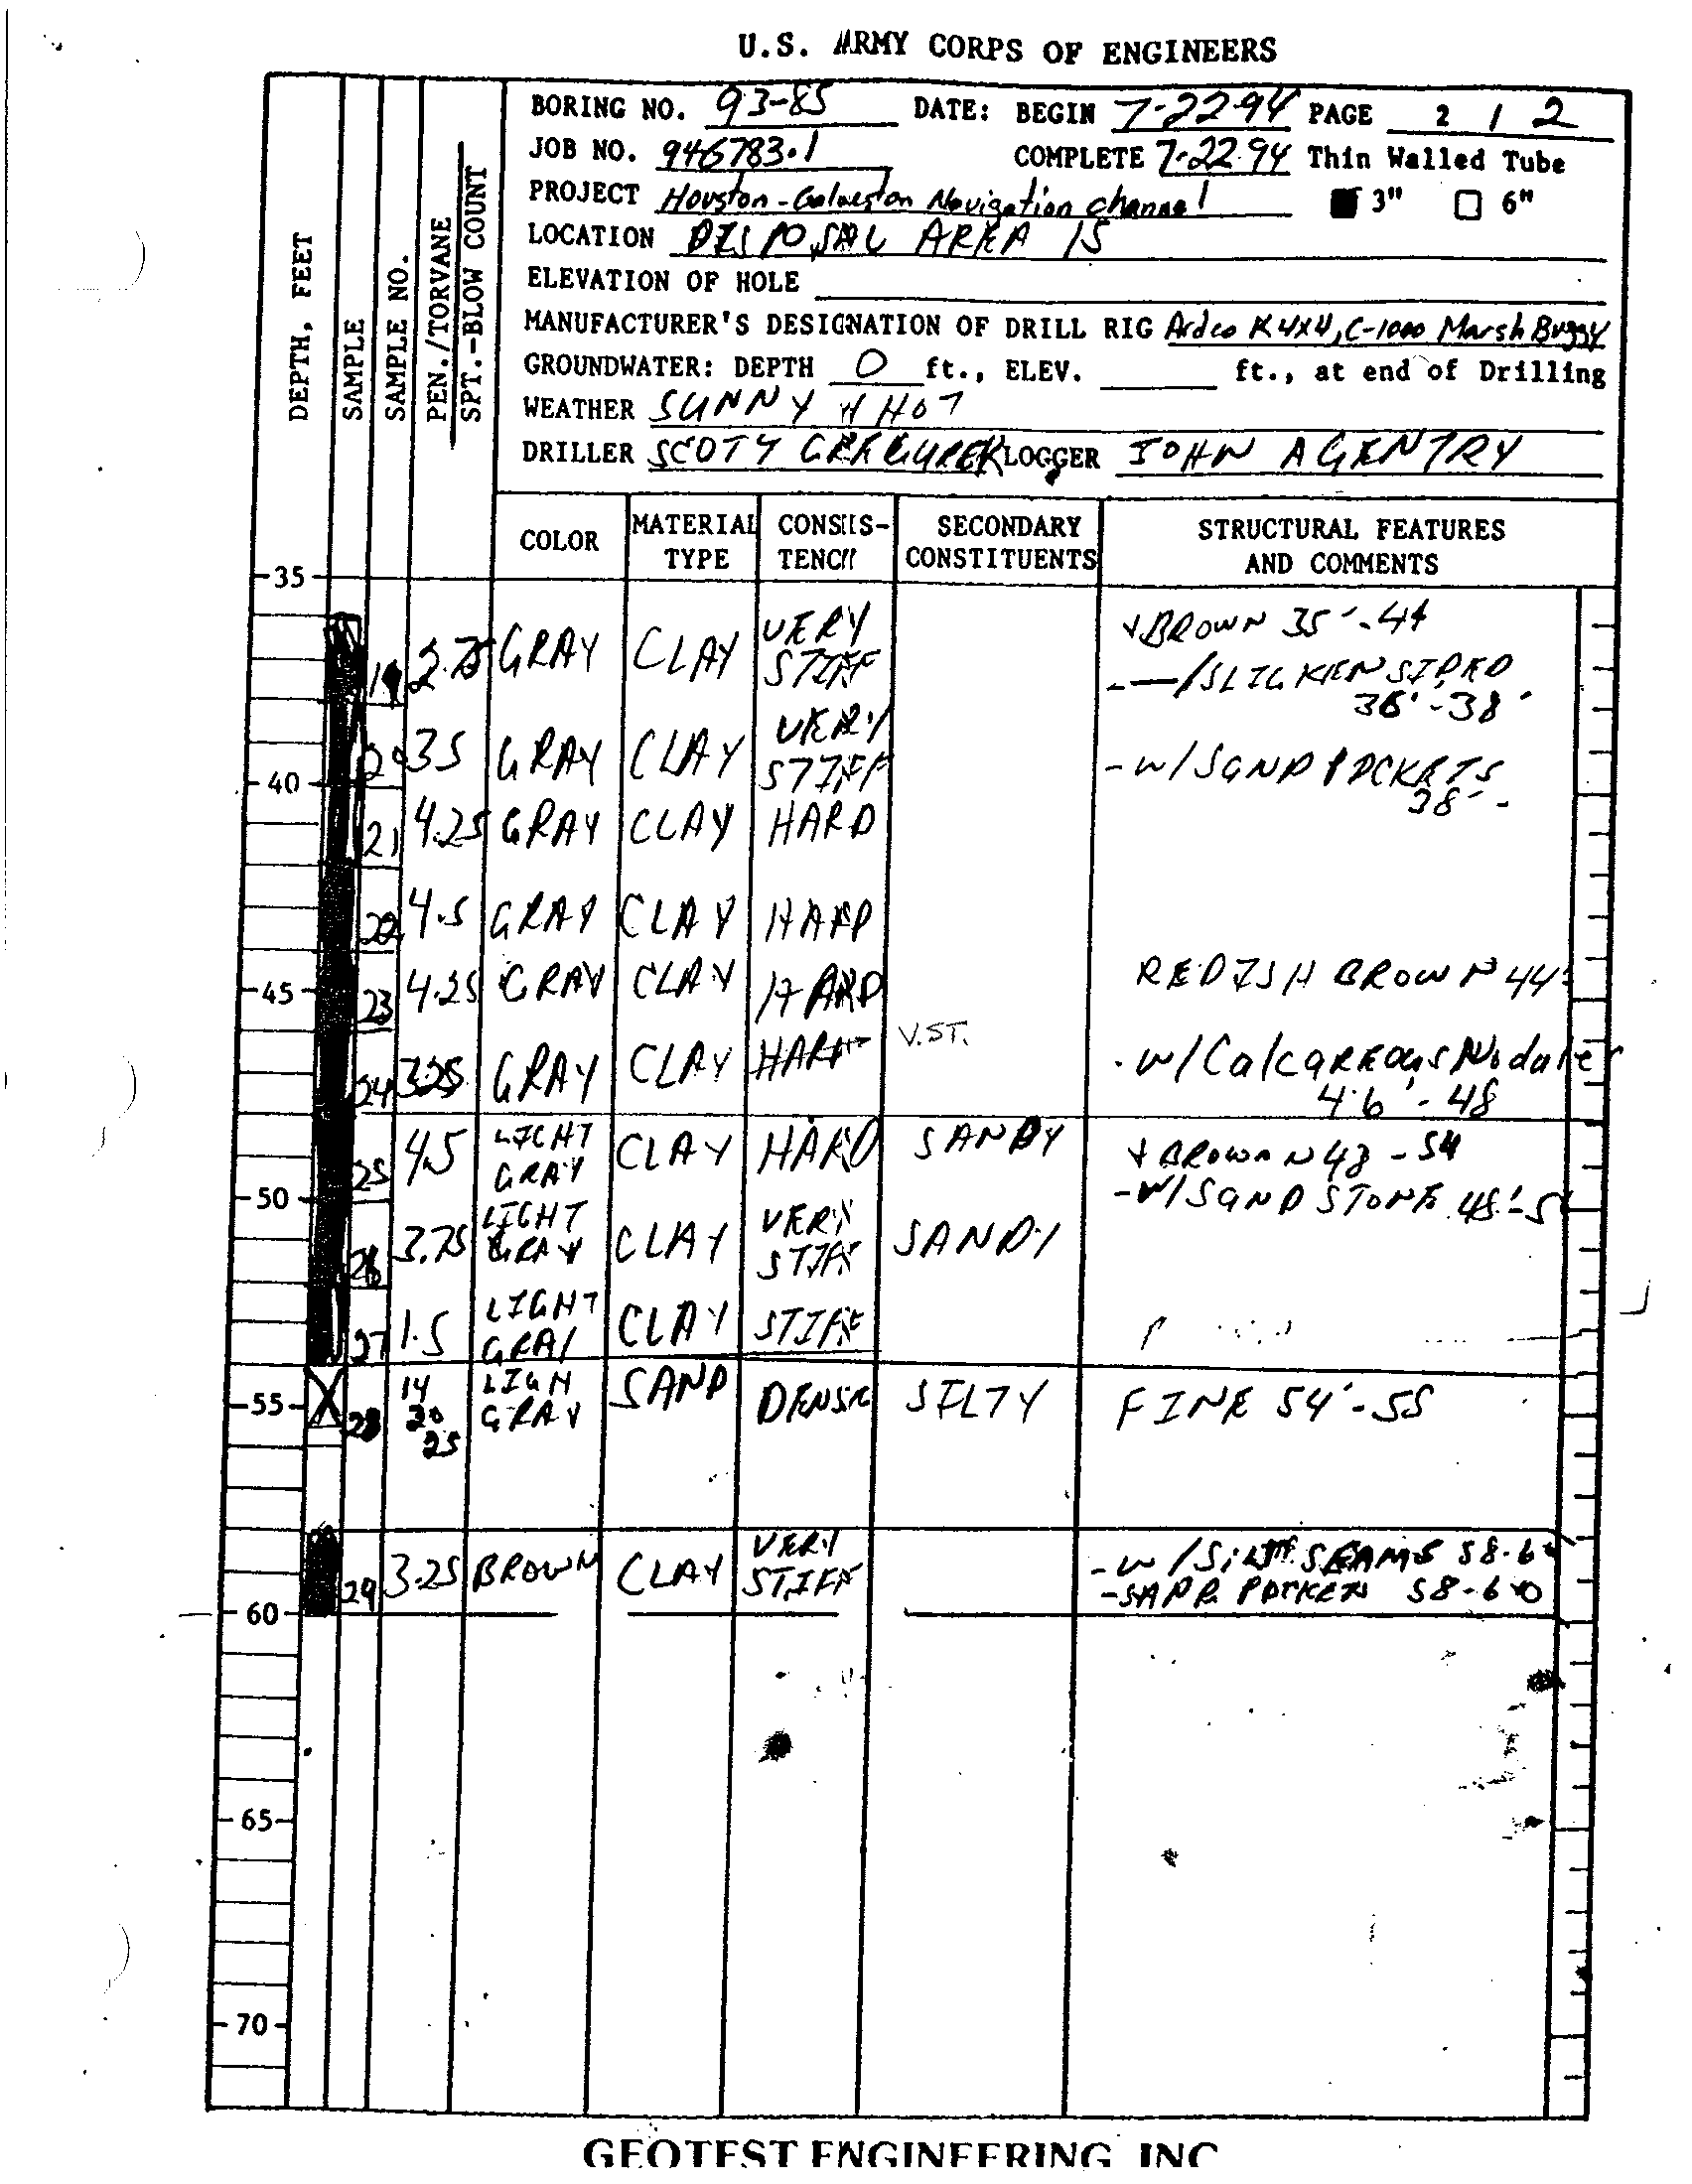 U.S. ARMY CORPS OF ENGINEERS
BORING NO. 93-85 DATE: BEGIN 7-22-94 PAGE 2 / 2
JOB NO. 946783.1 COMPLETE 7-22-94 Thin Walled Tube
PROJECT Houston-Galveston Navigation channel 3" 6"
LOCATION DISPOSAL AREA 15
ELEVATION OF HOLE
MANUFACTURER'S DESIGNATION OF DRILL RIG Ardco K 4X4, C-1000 Marsh Buggy
GROUNDWATER: DEPTH 0 ft., ELEV. ft., at end of Drilling
WEATHER SUNNY & HOT
DRILLER SCOTY GREGUREK LOGGER JOHN AGENTRY
DEPTH, FEET
SAMPLE
SAMPLE NO.
PEN./TORVANE
SPT.-BLOW COUNT
COLOR MATERIAL TYPE CONSIS-TENCY SECONDARY CONSTITUENTS STRUCTURAL FEATURES AND COMMENTS
35
19 2.75 GRAY CLAY VERY STIFF + BROWN 35'-44
-/SLICKENSIDED
36'-38'
20 35 GRAY CLAY VERY STIFF -W/SAND POCKETS
38'-
40
21 4.25 GRAY CLAY HARD
22 4.5 GRAY CLAY HARD
45
23 4.25 GRAY CLAY HARD REDISH BROWN 44'
24 3.25 GRAY CLAY HARD V.ST. -W/CalcaREOUS Nodules
46'-48
25 4.5 LIGHT GRAY CLAY HARD SANDY + BROWN 48-54
-W/SAND STONE 48'-5
50
26 3.75 LIGHT GRAY CLAY VERY STIFF SANDY
27 1.5 LIGHT GRAY CLAY STIFF
55
28 14 20 25 LIGH GRAY SAND DENSE SILTY FINE 54'-55
29 3.25 BROWN CLAY VERY STIFF -W/SILT SEAMS 58-6
-SAND POCKETS 58-60
60
65
70
GEOTEST ENGINEERING INC